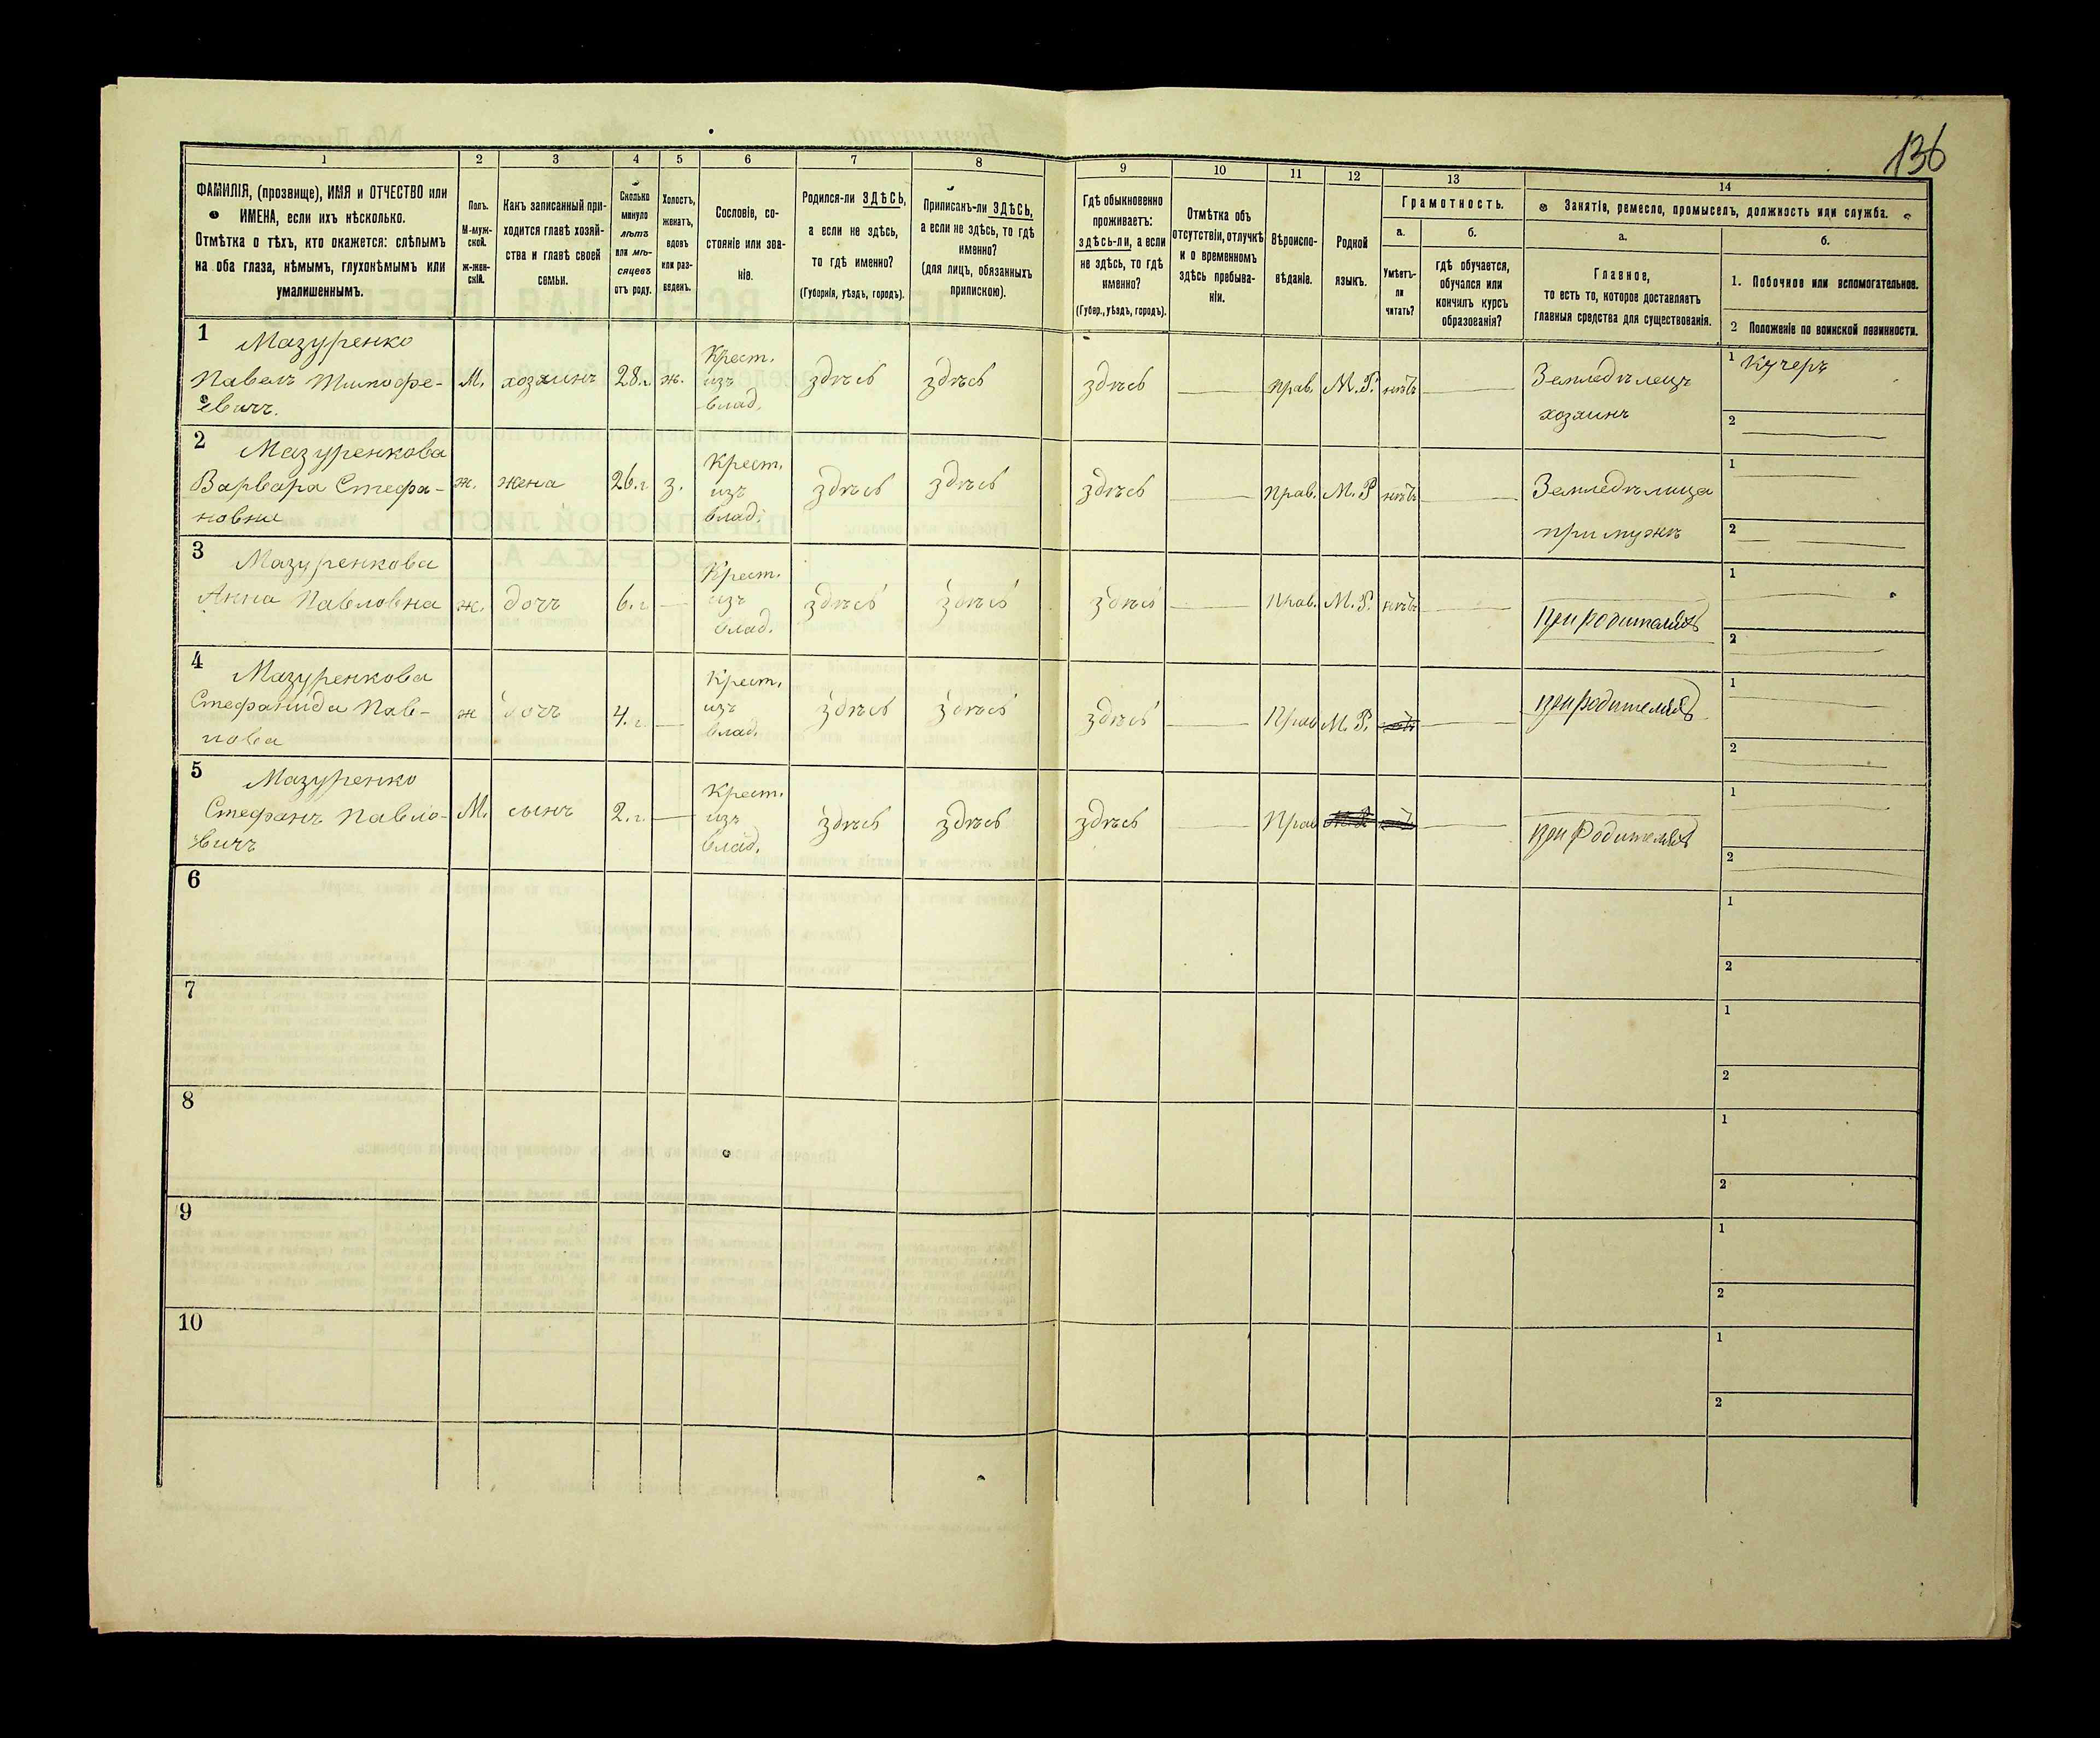 136
1 2 3 4 5 6 7 8 9 10 11 12 13 14
ФАМИЛІЯ, (прозвище), ИМЯ и ОТЧЕСТВО или
ИМЕНА, если ихъ нѣсколько.
Отмѣтка о тѣхъ, кто окажется: слѣпымъ
на оба глаза, нѣмымъ, глухонѣмымъ или
умалишеннымъ.
Полъ.
М-муж-
ской.
ж-жен-
скій.
Какъ записанный при-
ходится главѣ хозяй-
ства и главѣ своей
семьи.
Сколько
минуло
лѣтъ
или мѣ-
сяцевъ
отъ роду.
Холостъ,
женатъ,
вдовъ
или раз-
веденъ.
Сословіе, со-
стояніе или зва-
ніе.
Родился-ли ЗДѢСЬ,
а если не здѣсь,
то гдѣ именно?
(Губернія, уѣздъ, городъ).
Приписанъ-ли ЗДѢСЬ,
а если не здѣсь, то гдѣ
именно?
(для лицъ, обязанныхъ
припискою).
Гдѣ обыкновенно
проживаетъ:
здѣсь-ли, а если
не здѣсь, то гдѣ
именно?
(Губер., уѣздъ, городъ).
Отмѣтка объ
отсутствіи, отлучкѣ
и о временномъ
здѣсь пребыва-
ніи.
Вѣроиспо-
вѣданіе.
Родной
языкъ.
Грамотность.
а.
Умѣетъ-
ли
читать?
б.
гдѣ обучается,
обучался или
кончилъ курсъ
образованія?
Занятіе, ремесло, промыселъ, должность или служба.
а.
Главное,
то есть то, которое доставляетъ
главныя средства для существованія.
б.
1. Побочное или вспомогательное.
2 Положеніе по воинской повинности.
1 Мазуренко
Павелъ Тимофе-
евичъ.
М. хозяинъ 28.г. ж.
Крест.
изъ
влад.
здѣсь здѣсь здѣсь прав. М.Р. нѣтъ
Земледѣлецъ
хозяинъ
1 Кучеръ
2
2 Мазуренкова
Варвара Стефа-
новна
ж. жена 26.г з.
Крест.
изъ
влад.
здѣсь здѣсь здѣсь прав. М.Р нѣтъ
Земледѣлица
при мужѣ
1
2
3 Мазуренкова
Анна Павловна
ж. дочь 6.г
Крест.
изъ
влад.
здѣсь здѣсь здѣсь прав. М.Р. нѣтъ
при родителяхъ
1
2
4 Мазуренкова
Стефанида Пав-
лова
ж дочь 4.г.
Крест.
изъ
влад.
здѣсь здѣсь здѣсь Прав М.Р.
при родителяхъ
1
2
5 Мазуренко
Стефанъ Павло-
вичъ
М. сынъ 2.г.
Крест.
изъ
влад.
здѣсь здѣсь здѣсь Прав
при Родителяхъ
1
2
6
1
2
7
1
2
8
1
2
9
1
2
10
1
2